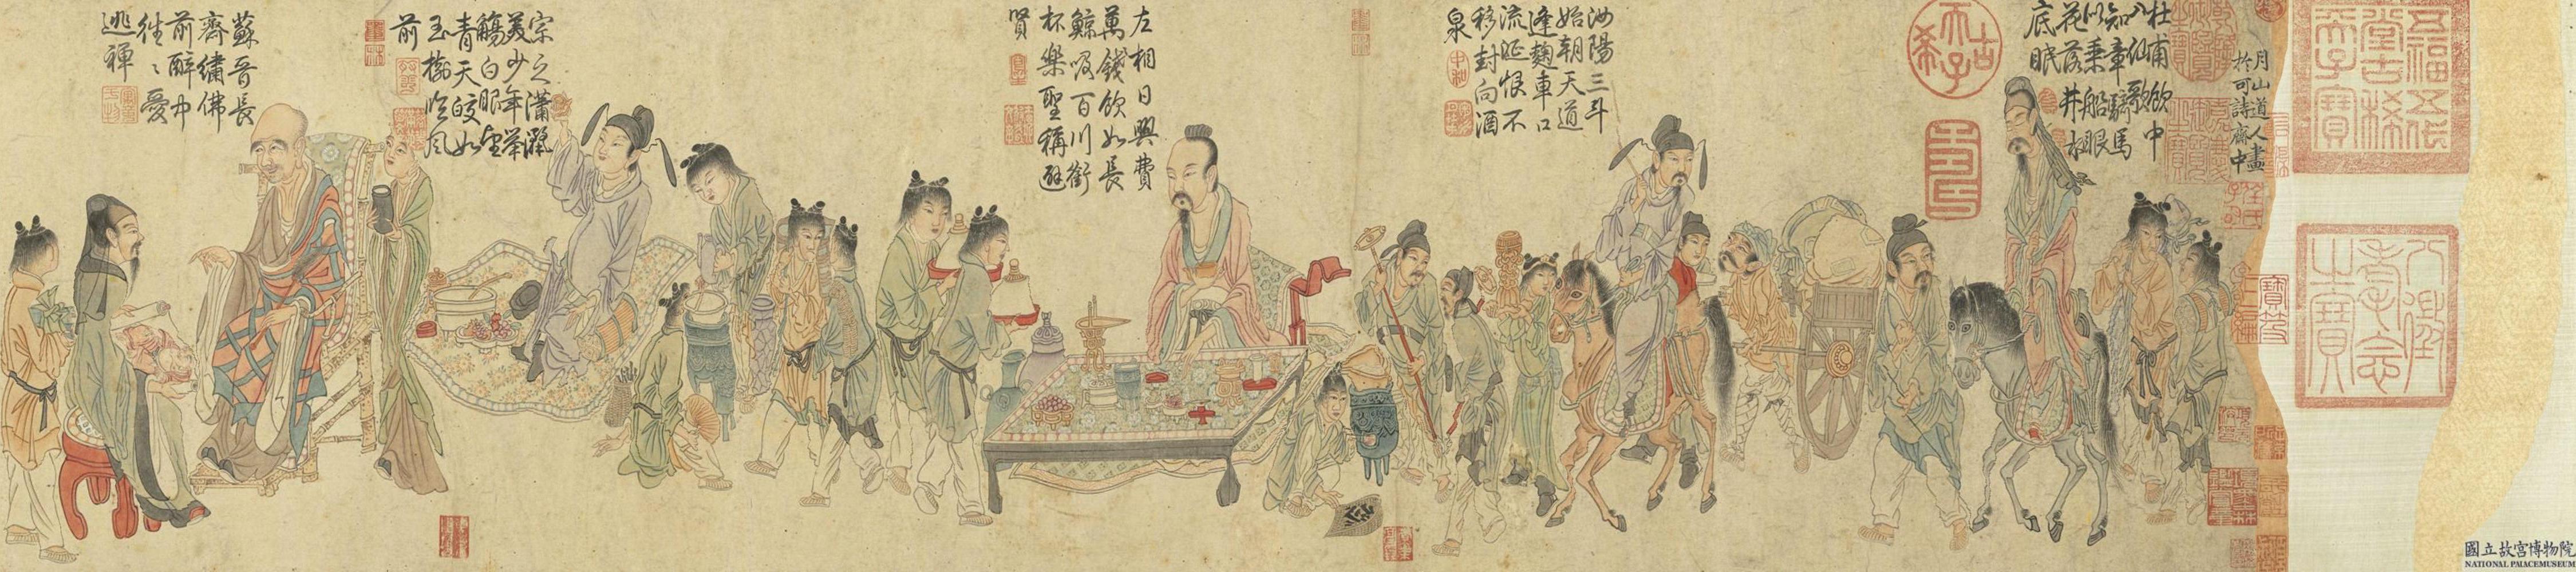 五福五代
堂古稀
天子寶
八徵耄念
之寶
月山道人畫
於可詩齋中
杜甫飲中
八仙歌
知章騎馬
似乘船眼
花落井水
底眠
古希天子
壽
汝陽三斗
始朝天道
逢麴車口
流涎恨不
移封向酒
泉
左相日興費
萬錢飲如長
鯨吸百川銜
杯樂聖稱避
賢
宗之瀟灑
美少年舉
觴白眼望
青天皎如
玉樹臨風
前
蘇晉長
齋繡佛
前醉中
往〻愛
逃禪
國立故宮博物院
NATIONAL PALACE MUSEUM